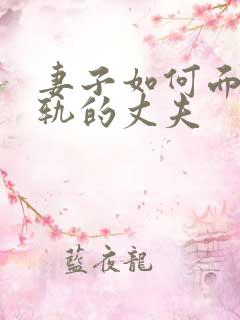 妻子如何而
轨的丈夫
藍夜龍